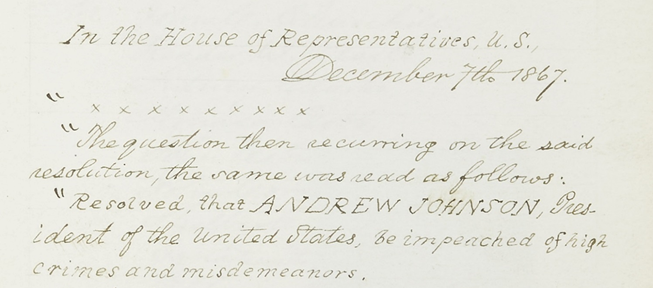 In the House of Representatives, U.S.,
December 7th 1867.
" x x x x x x x x x
"The question then recurring on the said
resolution, the same was read as follows:
"Resolved, that ANDREW JOHNSON, Pres-
ident of the United States, be impeached of high
crimes and misdemeanors.